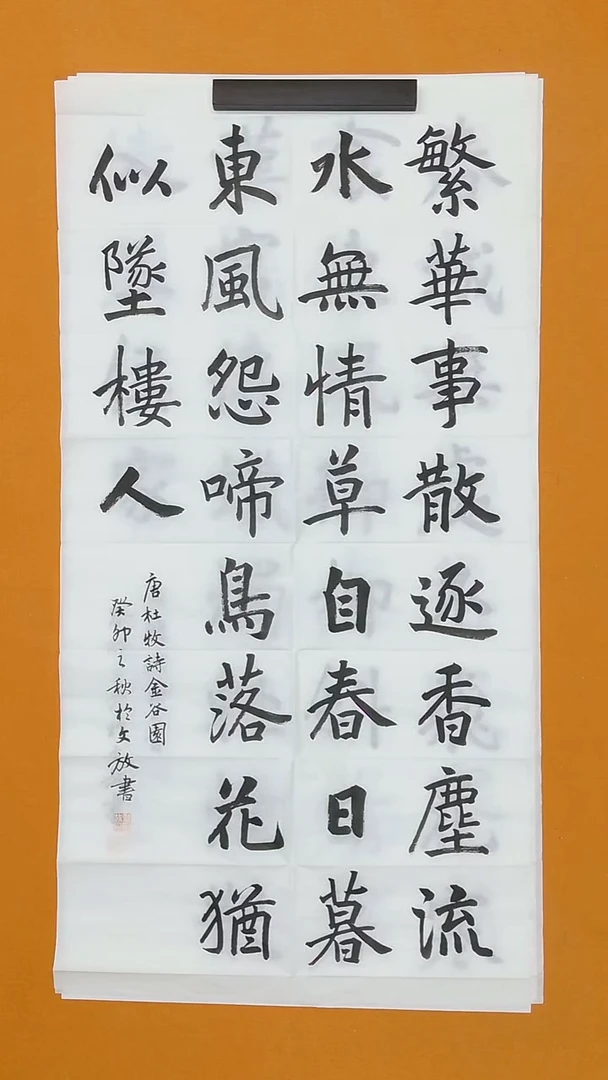 繁華事散逐香塵流
水無情草自春日暮
東風怨啼鳥落花猶
似墜樓人
唐杜牧詩金谷園
癸卯之秋於文放書